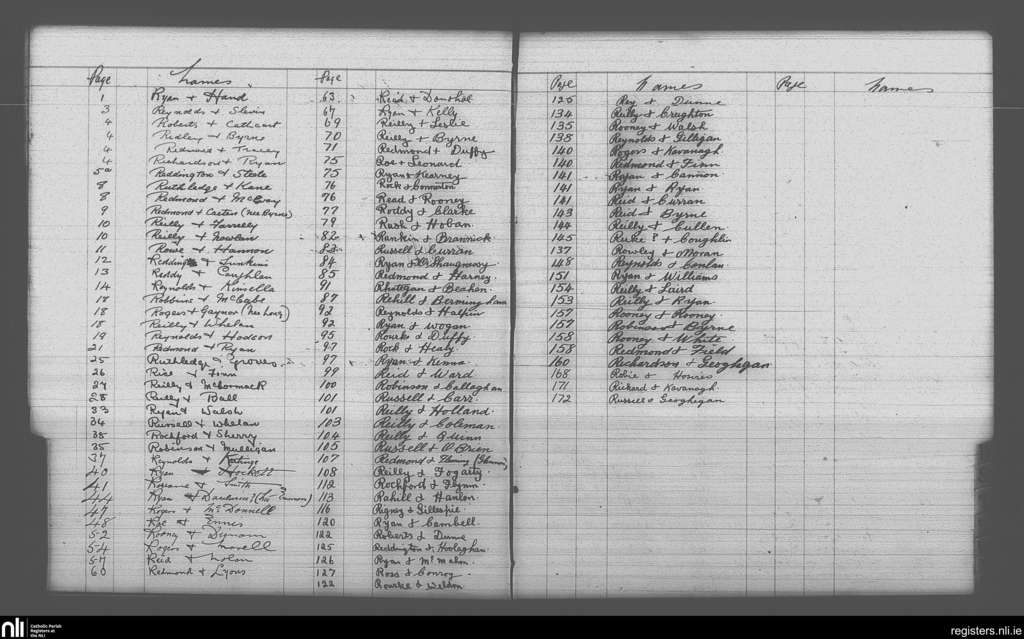 Page Names
1 Ryan & Hand
3 Reynolds & Slevin
4 Roberts & Cathcart
4 Ridley & Byrne
4 Redmond &
4 Richardson & Ryan
5a Reddington & Steele
8 Ruthledge & Kane
8 Redmond & McEvoy
9 Redmond & (nee Byrne)
10 Reilly & Farrelly
10 Reilly & Nowlan
11 Rowe & Hannon
12 &
13 Reddy & Coughlan
14 Reynolds & Kinsella
18 Robbins & McCabe
18 Rogers & Gaynor
18 Reilly & Whelan
19 Reynolds & Hodson
21 Redmond & Ryan
25 Ruthledge & Groves
26 Rice & Finn
27 Reilly & McCormack
28 Reilly & Ball
33 Ryan & Walsh
34 Russell & Whelan
35 Rochford & Sherry
35 Robinson & Mulligan
37 Reynolds &
40 Ryan & Hockett
41 & Smith
44 Ryan &
47 Rogers & McDonnell
48 Roe & Ennis
52 Rooney & Dignam
54 Rogers &
57 Reid & Nolan
60 Redmond & Lyons
Page
63 Reid & Donohoe
67 Ryan & Kelly
69 Reilly & Leslie
70 Reilly & Byrne
71 Redmond & Duffy
75 Roe & Leonard
75 Ryan & Kearney
76 Rock &
76 Read & Rooney
77 Roddy & Clarke
79 Rush & Hoban
82 Rankin & Brannick
83 Russell & Curran
84 Ryan & O'Shaugnessy
85 Redmond & Harney
91 Rhatigan & Beahen
87 Rehill & Bermingham
92 Reynolds & Halpin
92 Ryan & Wogan
95 Rourke & Duffy
97 Rock & Healy
97 Ryan &
99 Reid & Ward
100 Robinson & Callaghan
101 Russell & Carr
101 Reilly & Holland
103 Reilly & Coleman
104 Reilly & Quinn
105 Russell & O'Brien
107 Redmond &
108 Reilly & Fogarty
112 Rochford & Flynn
113 Rahill & Hanlon
116 Regney & Gillespie
120 Ryan & Cambell
122 Roberts & Dunne
125 Reddington & Hoolaghan
126 Ryan & McMahon
127 Ross & Conroy
122 Rourke & Wilson
Page Names
125 Roy & Dunne
134 Reilly & Creighton
135 Rooney & Walsh
138 Reynolds & Gilligan
140 Rogers & Kavanagh
140 Redmond & Finn
141 Ryan & Cannon
141 Ryan & Ryan
141 Reid & Curran
143 Reid & Byrne
144 Reilly & Cullen
145 & Coughlin
137 Rowley & Moran
148 Reynolds & Conlan
151 Ryan & Williams
154 Reilly & Laird
153 Reilly & Ryan
157 Rooney & Rooney
157 Robinson & Byrne
158 Rooney & White
158 Redmond & Field
160 Richardson & Geoghegan
168 &
171 Rickard & Kavanagh
172 Russell & Geoghegan
Page Names
nli
Catholic Parish
Registers at
the NLI
registers.nli.ie